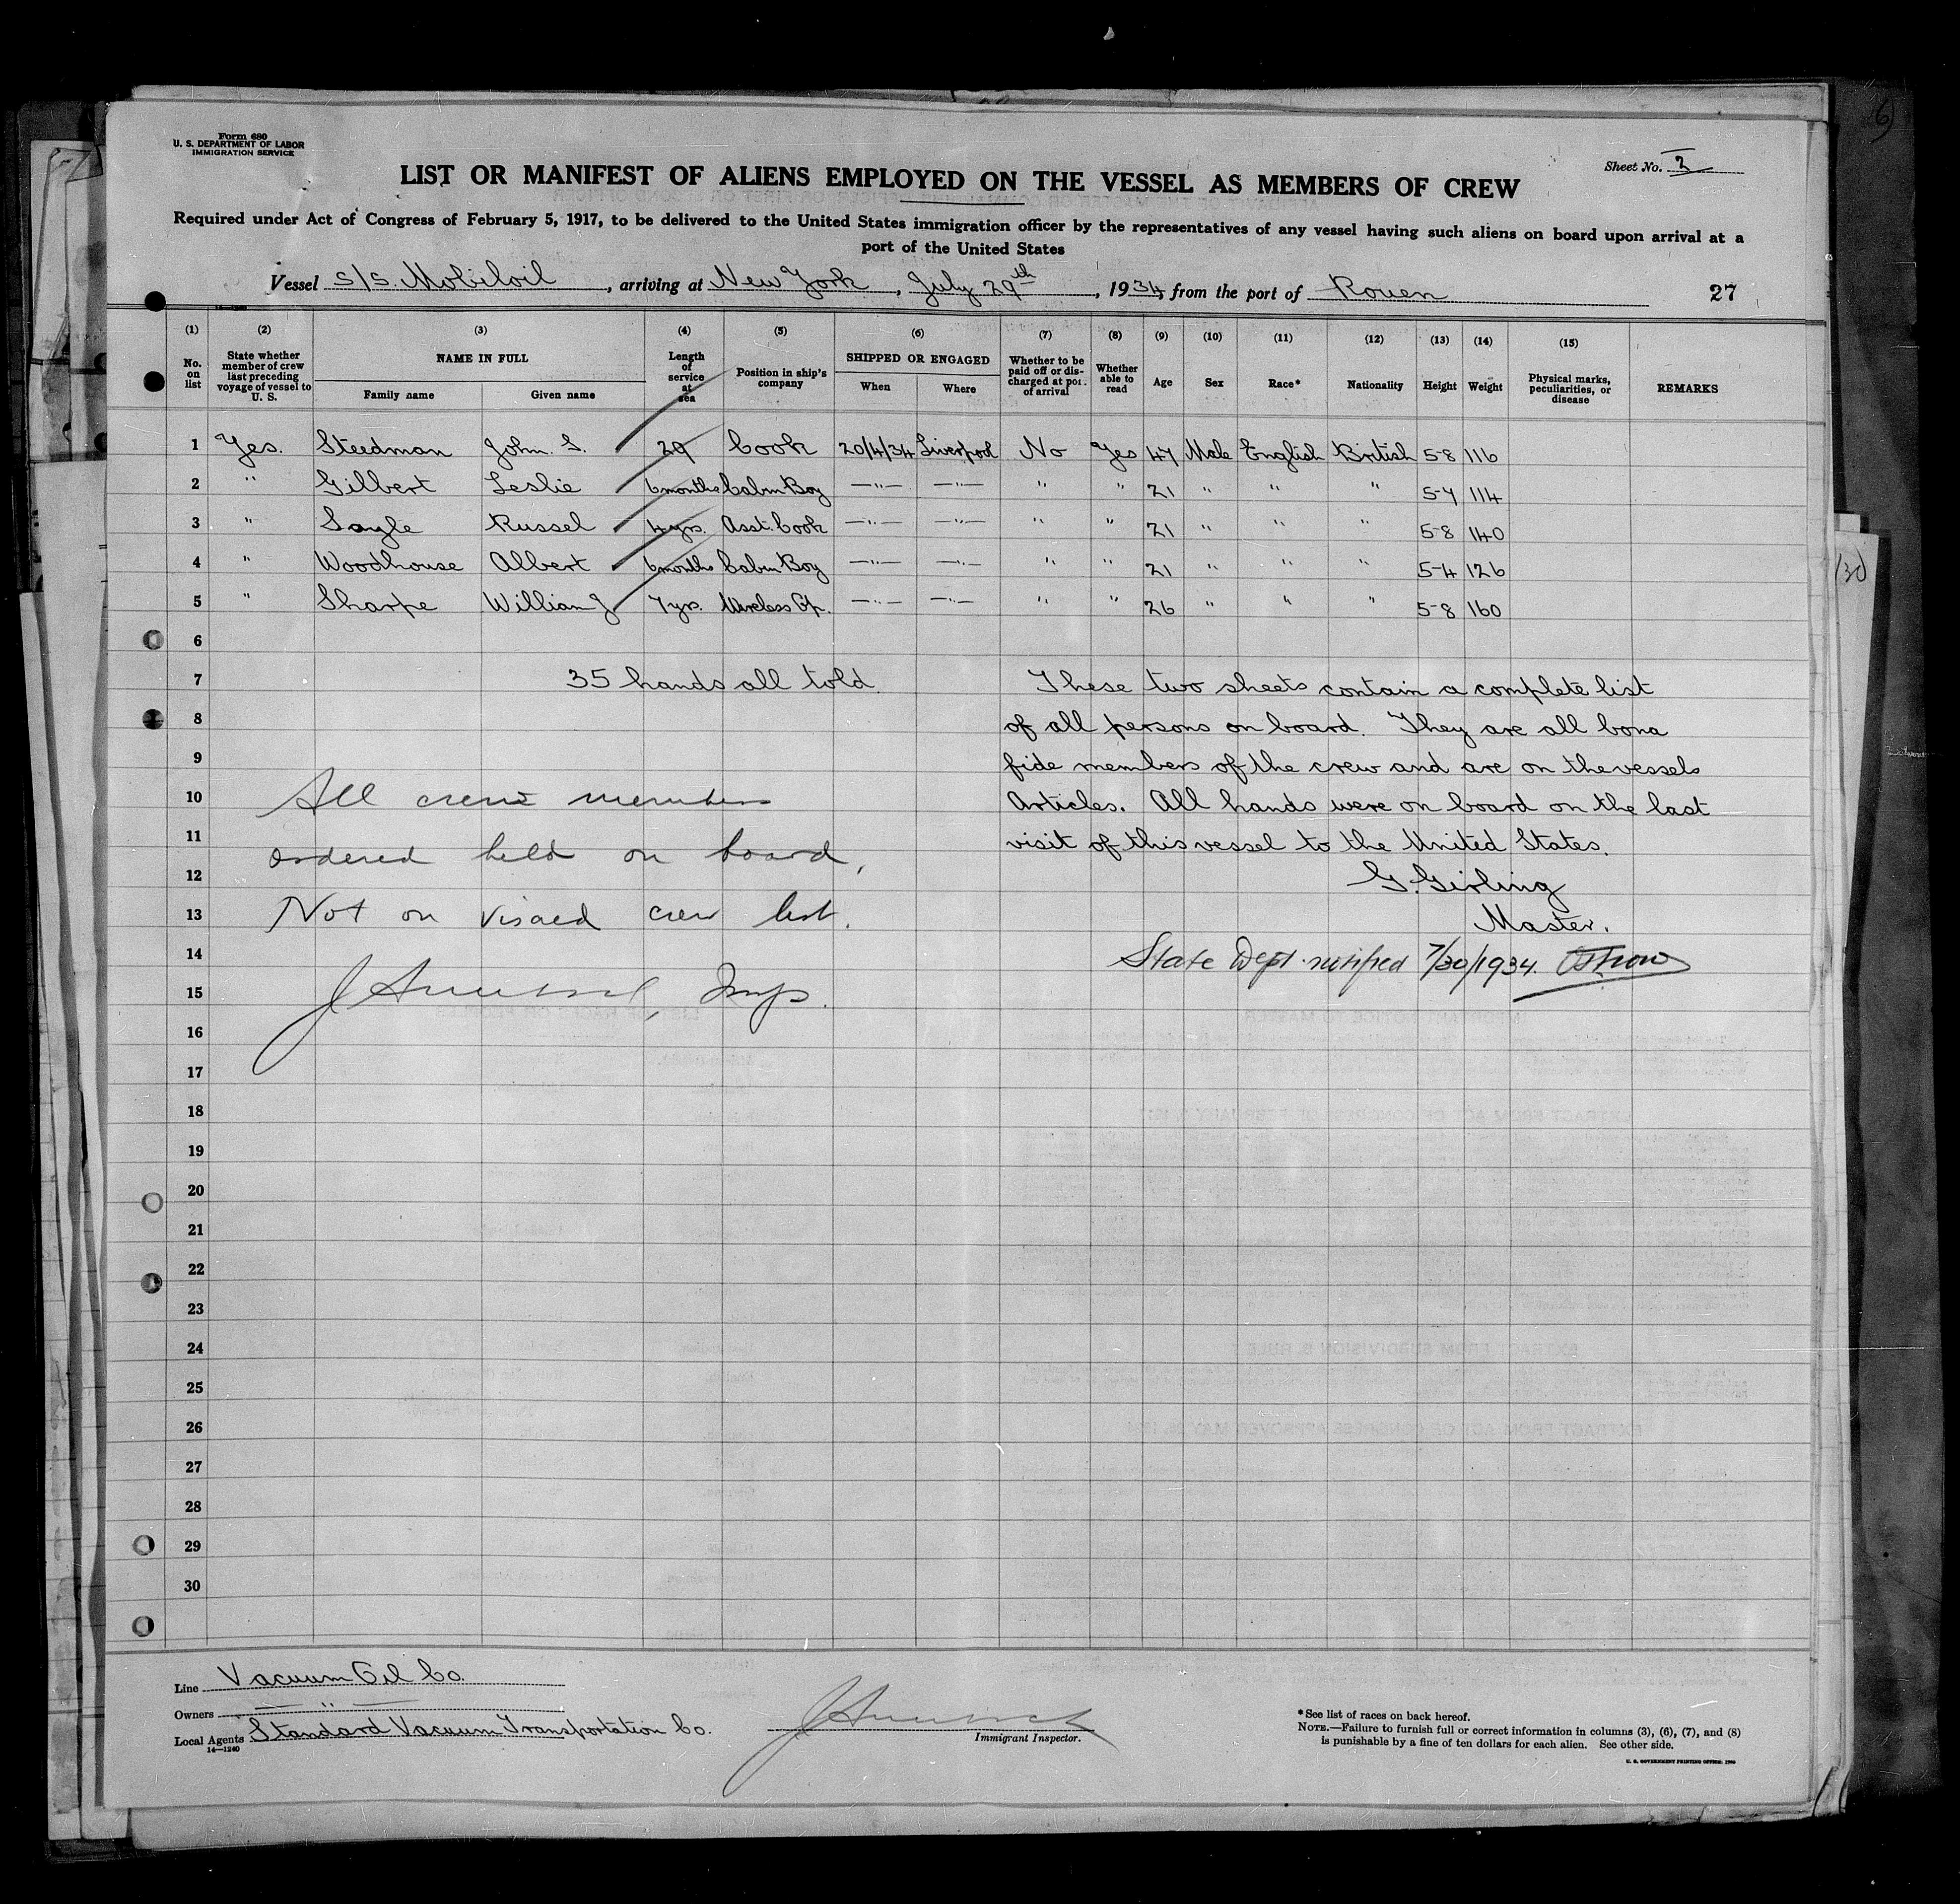 Form 680
U. S. DEPARTMENT OF LABOR
IMMIGRATION SERVICE
Sheet No. 2
LIST OR MANIFEST OF ALIENS EMPLOYED ON THE VESSEL AS MEMBERS OF CREW
Required under Act of Congress of February 5, 1917, to be delivered to the United States immigration officer by the representatives of any vessel having such aliens on board upon arrival at a
port of the United States
Vessel S/S. Mobiloil, arriving at New York, July 29th, 1934, from the port of Rouen 27
(1) (2) (3) (4) (5) (6) (7) (8) (9) (10) (11) (12) (13) (14) (15)
No. on list State whether member of crew last preceding voyage of vessel to U. S. NAME IN FULL Family name Given name Length of service at sea Position in ship's company SHIPPED OR ENGAGED When Where Whether to be paid off or discharged at port of arrival Whether able to read Age Sex Race* Nationality Height Weight Physical marks, peculiarities, or disease REMARKS
1 Yes. Steedman John. S. 29 Cook 20/4/34 Liverpool No Yes 47 Male English British 5-8 116
2 " Gilbert Leslie 6 months Cabin Boy —"— —"— " " 21 " " " 5-7 114
3 " Sayle Russel 4 yrs. Asst. Cook —"— —"— " " 21 " " " 5-8 140
4 " Woodhouse Albert 6 months Cabin Boy —"— —"— " " 21 " " " 5-4 126
5 " Sharpe William J 7 yrs. Wireless Op. —"— —"— " " 26 " " " 5-8 160
6
7 35 hands all told. These two sheets contain a complete list
8 of all persons on board. They are all bona
9 fide members of the crew and are on the vessels
10 All crew members Articles. All hands were on board on the last
11 ordered held on board, visit of this vessel to the United States.
12 G. Girling
13 Not on visaed crew list. Master.
14 State Dept. notified 7/30/1934.
15 Insp.
16
17
18
19
20
21
22
23
24
25
26
27
28
29
30
Line Vacuum Oil Co.
Owners —"—
Local Agents Standard Vacuum Transportation Co.
14—1240
Immigrant Inspector.
*See list of races on back hereof.
NOTE.—Failure to furnish full or correct information in columns (3), (6), (7), and (8)
is punishable by a fine of ten dollars for each alien. See other side.